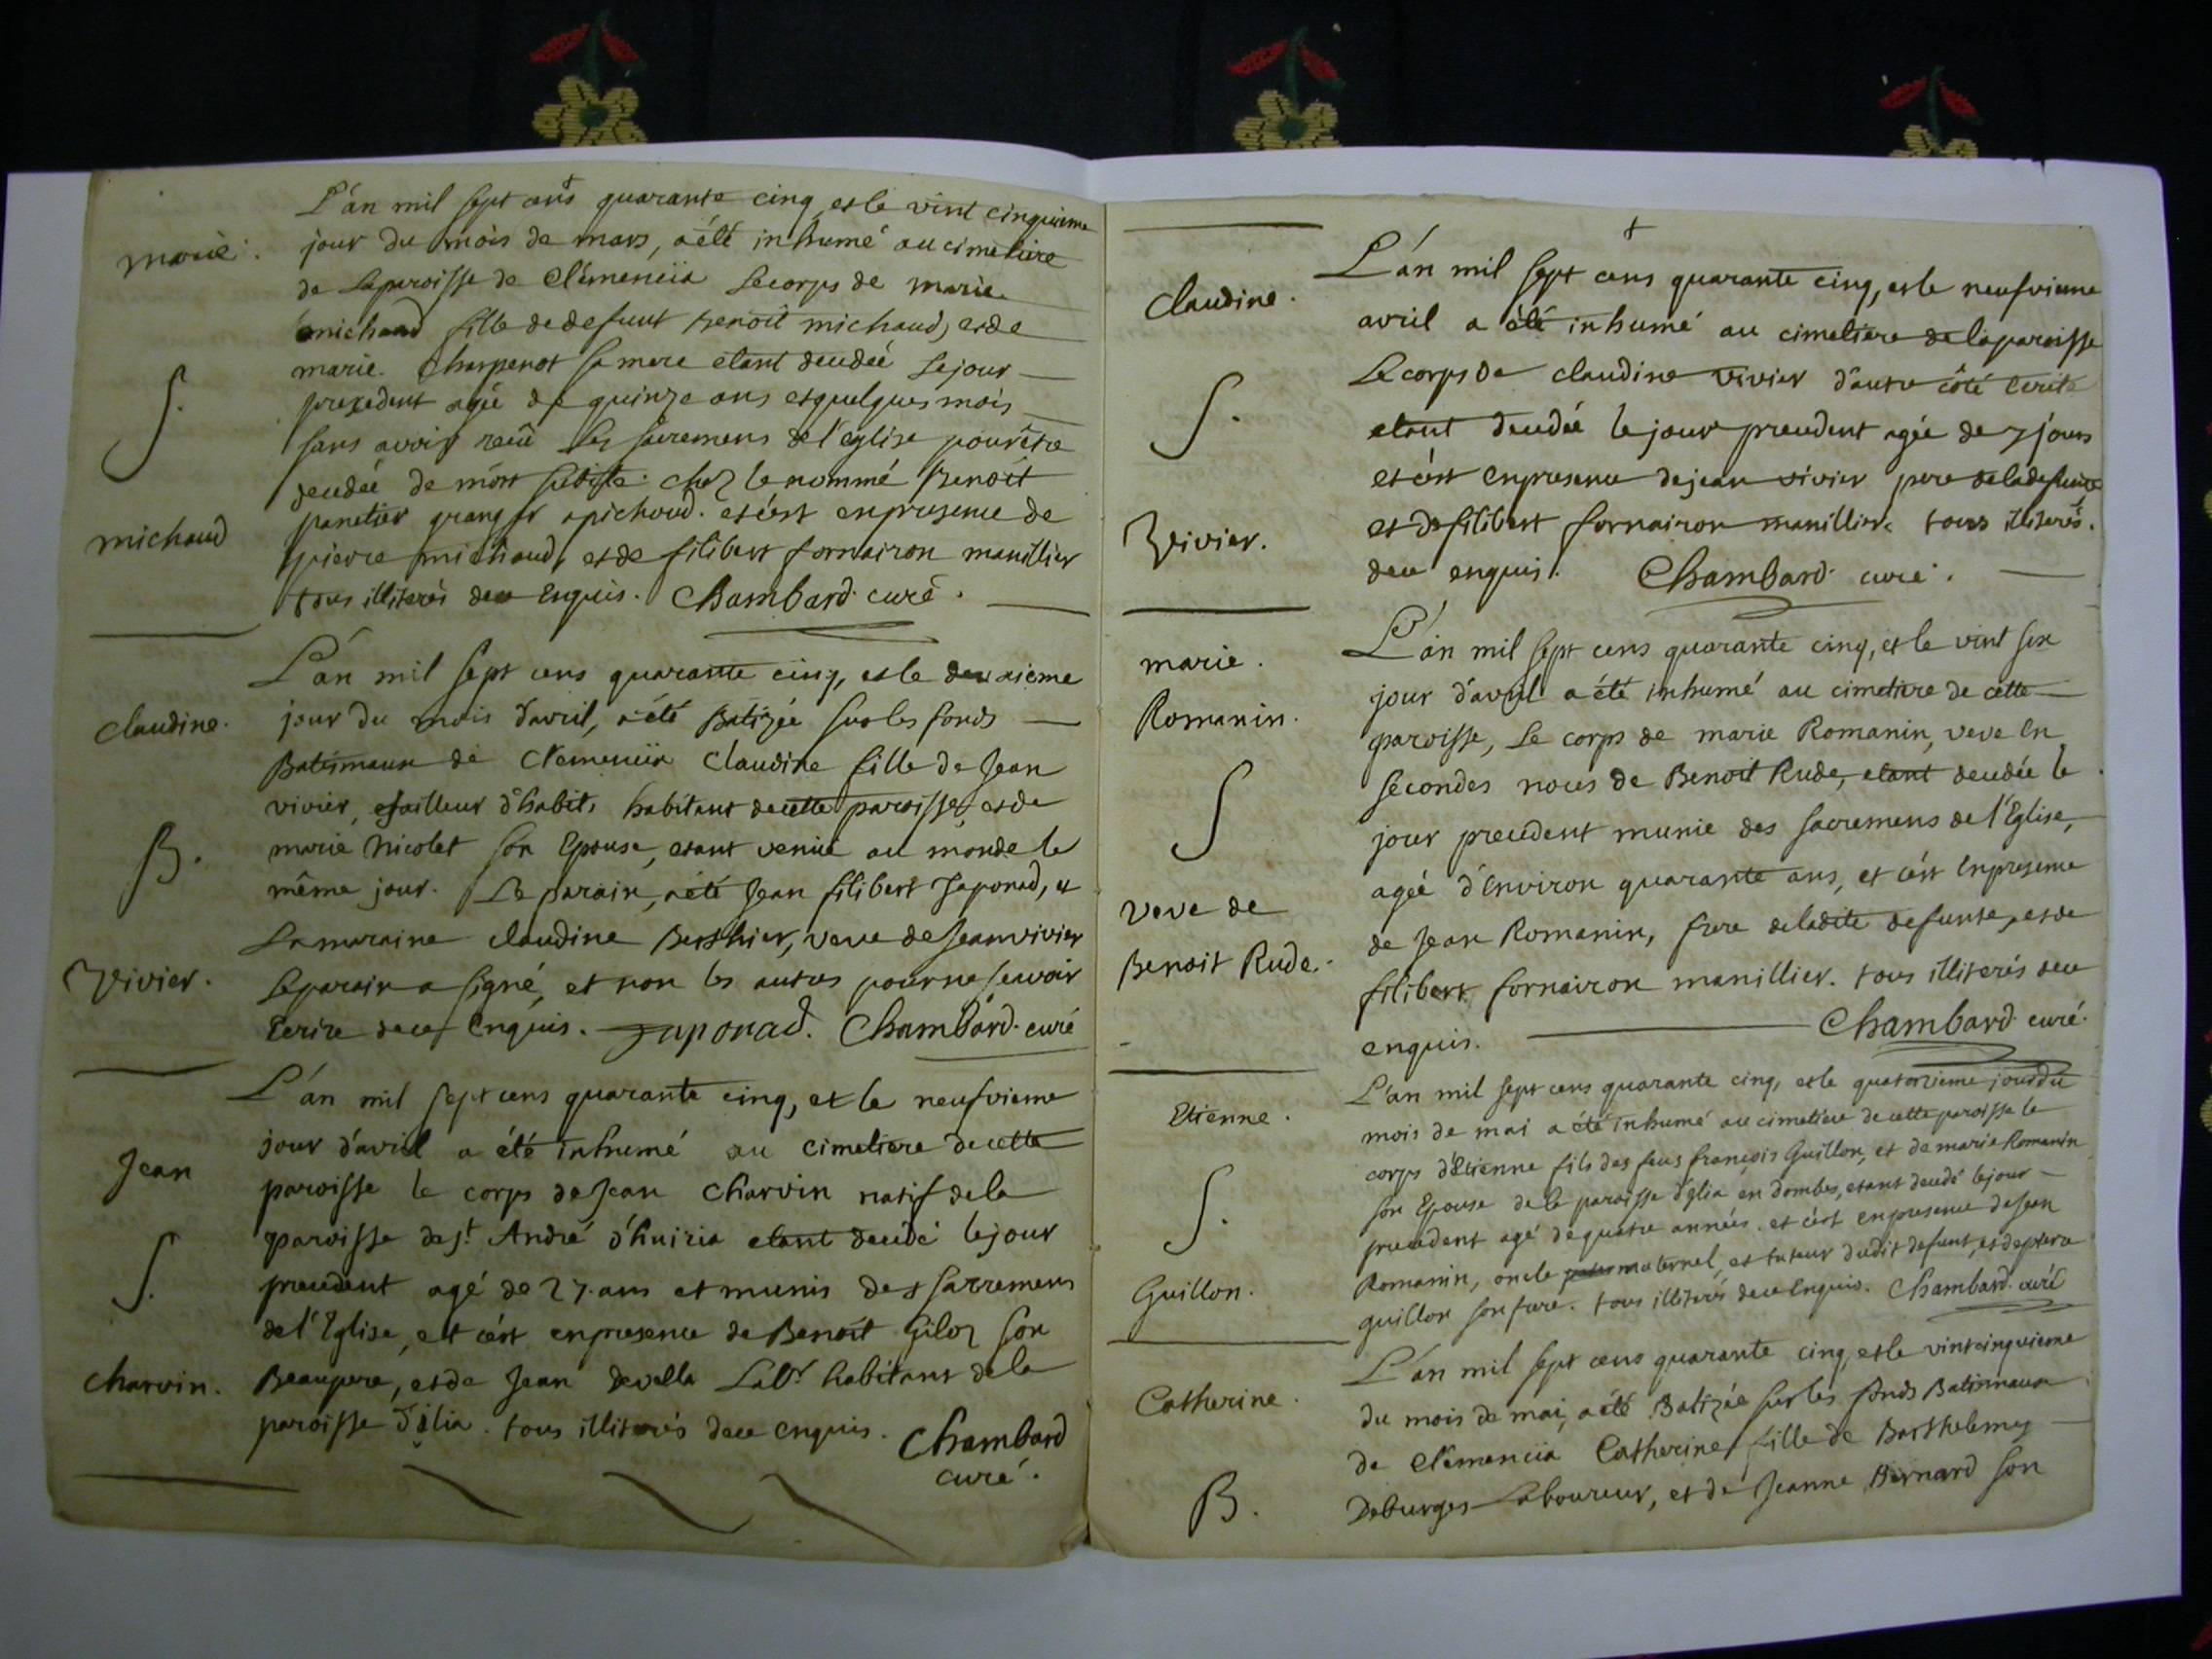 marie.
S.
michaud
L'án mil sept cens quarante cinq, et le vint cinquieme
jour du mois de mars, a été inhumé au cimetiere
de la paroisse de Clémencia le corps de marie
michaud fille de defunt benoit michaud, et de
marie Charpenot sa mere etant decedeé le jour
precedent ageé de quinze ans et quelques mois
sans avoir receu les sacremens de l'eglise pour être
decedeé de mort subitte chez le nommé Benoit
panetier granger a pichoud. et c'est en presence de
pierre michaud, et de filibert fornairon manillier
tous illiterés de ce Enquis. Chambard curé.
claudine.
B.
Vivier.
L'án mil sept cens quarante cinq, et le deuxieme
jour du mois d'avril, a été Batizée sur les fonds
Batismaux de Clemencia Claudine fille de Jean
vivier, tailleur d'habits habitant de cette paroisse, et de
marie Nicolet son Epouse, etant venuë au monde le
même jour. Le parain, a été Jean filibert Japonad, et
La maraine claudine Berthier, veve de Jean vivier
Le parain a signé, et non les autres pour ne sçavoir
Ecrire de ce Enquis. Japonad. Chambard curé
Jean
S.
charvin.
L'án mil sept cens quarante cinq, et le neufvieme
jour d'avril a été inhumé au cimetiere de cette
paroisse le corps de Jean charvin natif de la
paroisse de st. André d'huiria etant decedé le jour
precedent agé de 27 ans et munis des sacremens
de l'Eglise, et c'est en presence de Benoit Giloz son
Beaupere, et de Jean Devella Labr. habitans de la
paroisse d'ilia. tous illiterés de ce enquis. Chambard
curé.
claudine.
S.
Vivier.
L'án mil sept cens quarante cinq, et le neufvieme
avril a été inhumé au cimetiere de la paroisse
Le corps de claudine vivier d'autre côté Ecrite
etant decedeé le jour precedent agée de 7 jours
et c'est en presence de jean vivier pere de la defunte
et de filibert fornairon manillier. tous illiterés.
de ce enquis. Chambard curé.
marie.
Romanin.
S
veve de
Benoit Rude.
L'án mil sept cens quarante cinq, et le vint six
jour d'avril a été inhumé au cimetiere de cette
paroisse, Le corps de marie Romanin, veve En
secondes noces de Benoit Rude, etant decedée le
jour precedent munie des sacremens de l'Eglise,
ageé d'Environ quarante ans, et c'est En presence
de Jean Romanin, frere de ladite defunte, et de
filibert fornairon manillier. tous illiterés de ce
enquis. Chambard curé.
Etienne.
S.
Guillon.
L'án mil sept cens quarante cinq, et le quatorzieme jour du
mois de mai a été inhumé au cimetiere de cette paroisse le
corps d'Etienne fils des feus françois Guillon, et de marie Romanin
son Epouse de la paroisse d'iglia en dombes, etant decedé le jour
precedent agé de quatre années. et c'est en presence de Jean
Romanin, oncle maternel, et tuteur dudit defunt, et de pierre
guillon son frere. tous illiterés de ce Enquis. Chambard curé
Catherine.
B.
L'án mil sept cens quarante cinq, et le vint cinquieme
du mois de mai, a été Batizée sur les fonds Batismaux
de Clémencia Catherine fille de Barthelemy
Deburges Laboureur, et de Jeanne Bernard son